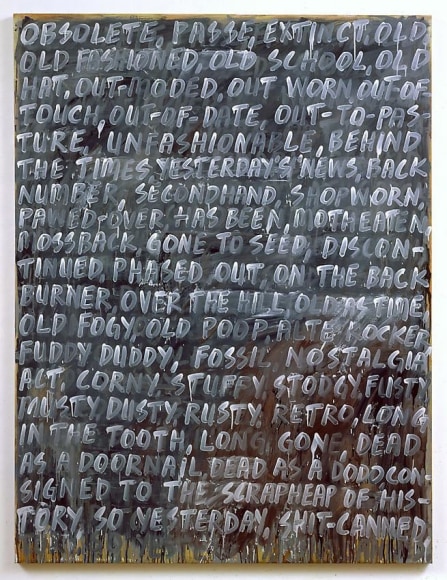 OBSOLETE, PASSÉ, EXTINCT, OLD
OLD FASHIONED, OLD SCHOOL, OLD
HAT, OUT-MODED, OUT WORN, OUT-OF-
TOUCH, OUT-OF-DATE, OUT-TO-PAS-
TURE, UNFASHIONABLE, BEHIND
THE TIMES, YESTERDAY'S NEWS, BACK
NUMBER, SECONDHAND, SHOPWORN,
PAWED-OVER, HAS BEEN, MOTHEATEN,
MOSSBACK, GONE TO SEED, DISCON-
TINUED, PHASED OUT, ON THE BACK
BURNER, OVER THE HILL, OLD AS TIME,
OLD FOGY, OLD POOP, ALTE KOCKER,
FUDDY DUDDY, FOSSIL, NOSTALGIA
ACT, CORNY, STUFFY, STODGY, FUSTY
MUSTY, DUSTY, RUSTY, RETRO, LONG
IN THE TOOTH, LONG GONE, DEAD
AS A DOORNAIL, DEAD AS A DODO, CON-
SIGNED TO THE SCRAPHEAP OF HIS-
TORY, SO YESTERDAY, SHIT-CANNED,